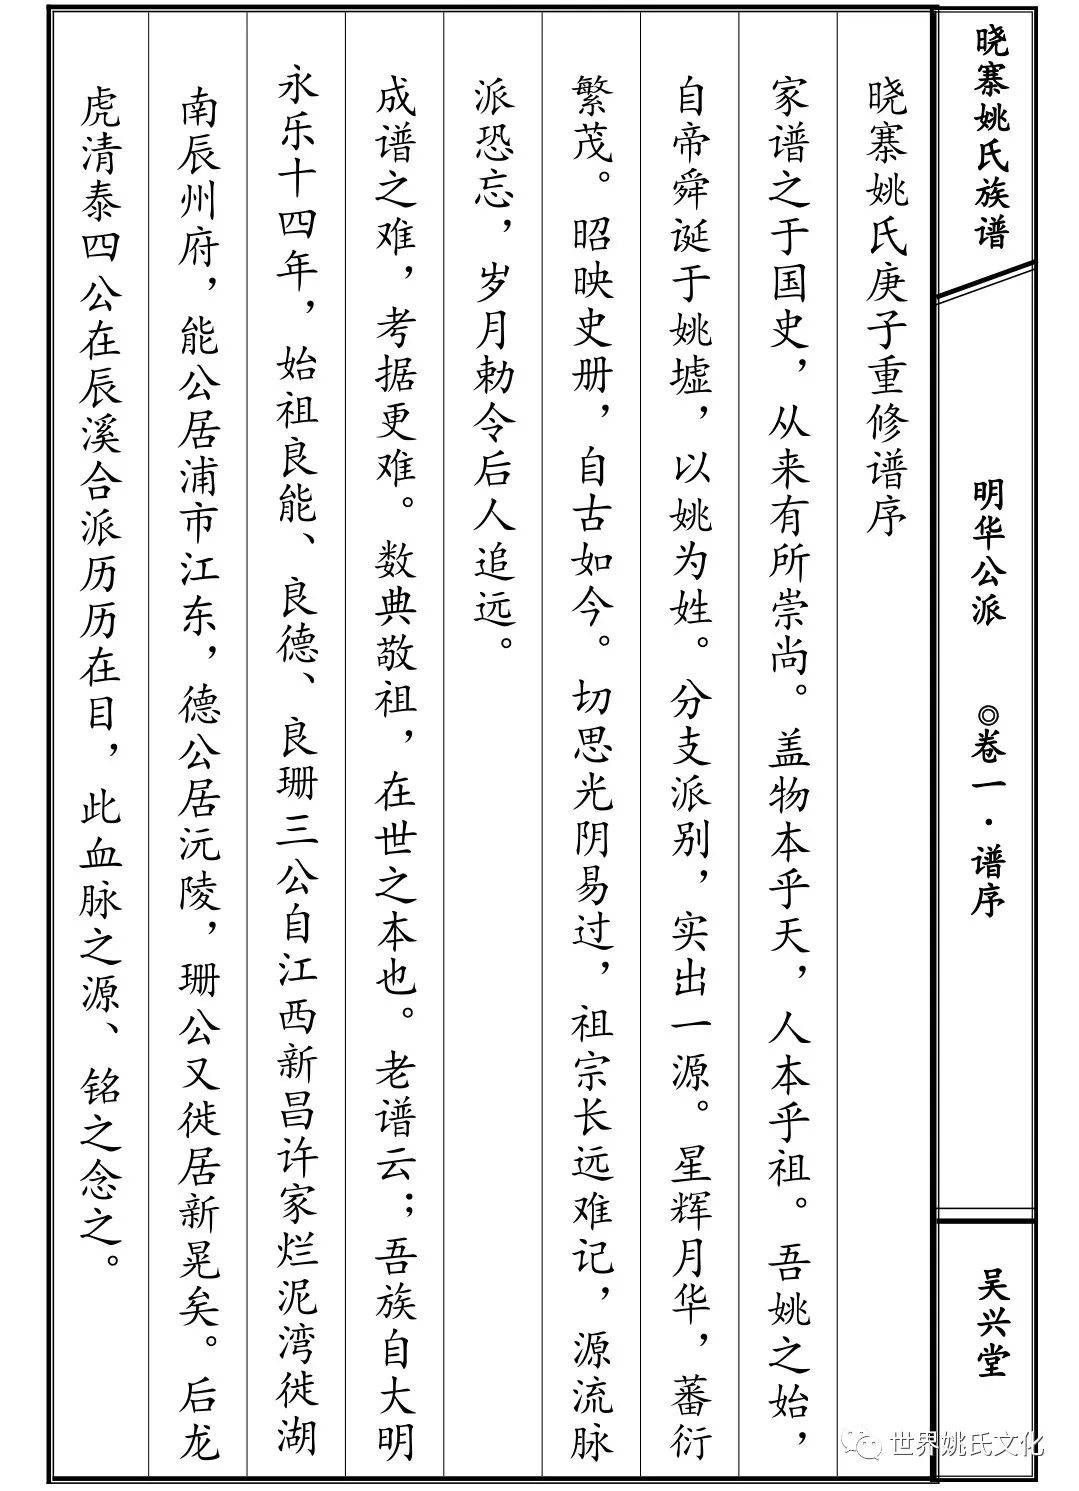 晓寨姚氏族谱
明华公派 ◎卷一·谱序
吴兴堂
晓寨姚氏庚子重修谱序
家谱之于国史，从来有所崇尚。盖物本乎天，人本乎祖。吾姚之始，
自帝舜诞于姚墟，以姚为姓。分支派别，实出一源。星辉月华，蕃衍
繁茂。昭映史册，自古如今。切思光阴易过，祖宗长远难记，源流脉
派恐忘，岁月勅令后人追远。
成谱之难，考据更难。数典敬祖，在世之本也。老谱云；吾族自大明
永乐十四年，始祖良能、良德、良珊三公自江西新昌许家烂泥湾徙湖
南辰州府，能公居浦市江东，德公居沅陵，珊公又徙居新晃矣。后龙
虎清泰四公在辰溪合派历历在目，此血脉之源、铭之念之。
世界姚氏文化